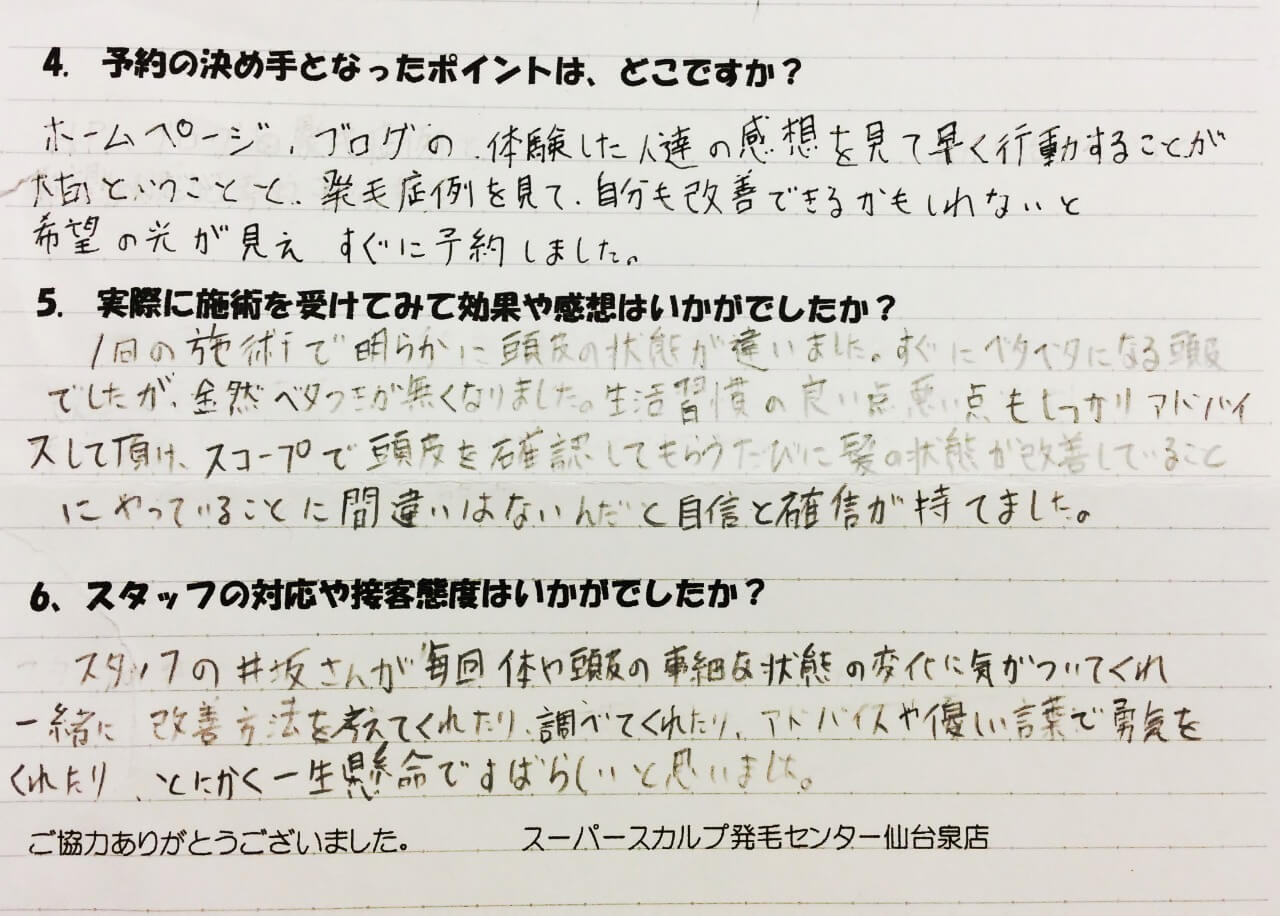 4. 予約の決め手となったポイントは、どこですか？
ホームページ、ブログの、体験した人達の感想を見て早く行動することが
大切ということと、発毛症例を見て、自分も改善できるかもしれないと
希望の光が見え すぐに予約しました。
5. 実際に施術を受けてみて効果や感想はいかがでしたか？
1回の施術で明らかに頭皮の状態が違いました。すぐにベタベタになる頭皮
でしたが、全然ベタつきが無くなりました。生活習慣の良い点悪い点もしっかりアドバイ
スして頂け、スコープで頭皮を確認してもらうたびに髪の状態が改善していること
にやっていることに間違いはないんだと自信と確信が持てました。
6、スタッフの対応や接客態度はいかがでしたか？
スタッフの井坂さんが毎回体や頭皮の事細な状態の変化に気がついてくれ
一緒に改善方法を考えてくれたり、調べてくれたり、アドバイスや優しい言葉で勇気を
くれたり、とにかく一生懸命ですばらしいと思いました。
ご協力ありがとうございました。 スーパースカルプ発毛センター仙台泉店